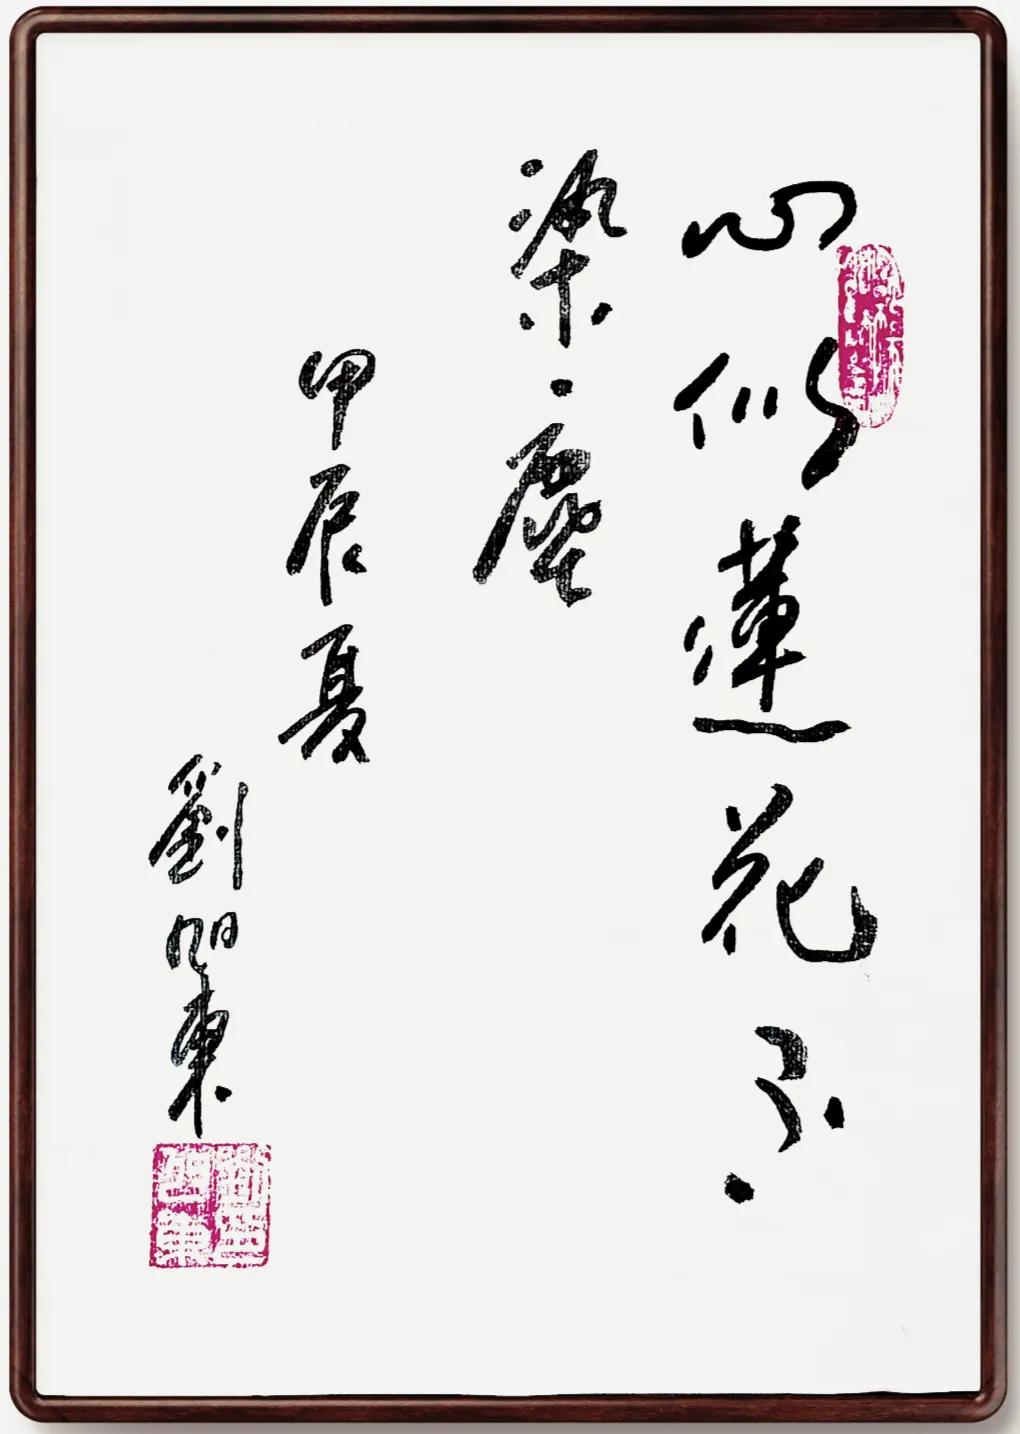 心似蓮花不
染塵
甲辰夏
劉旭東